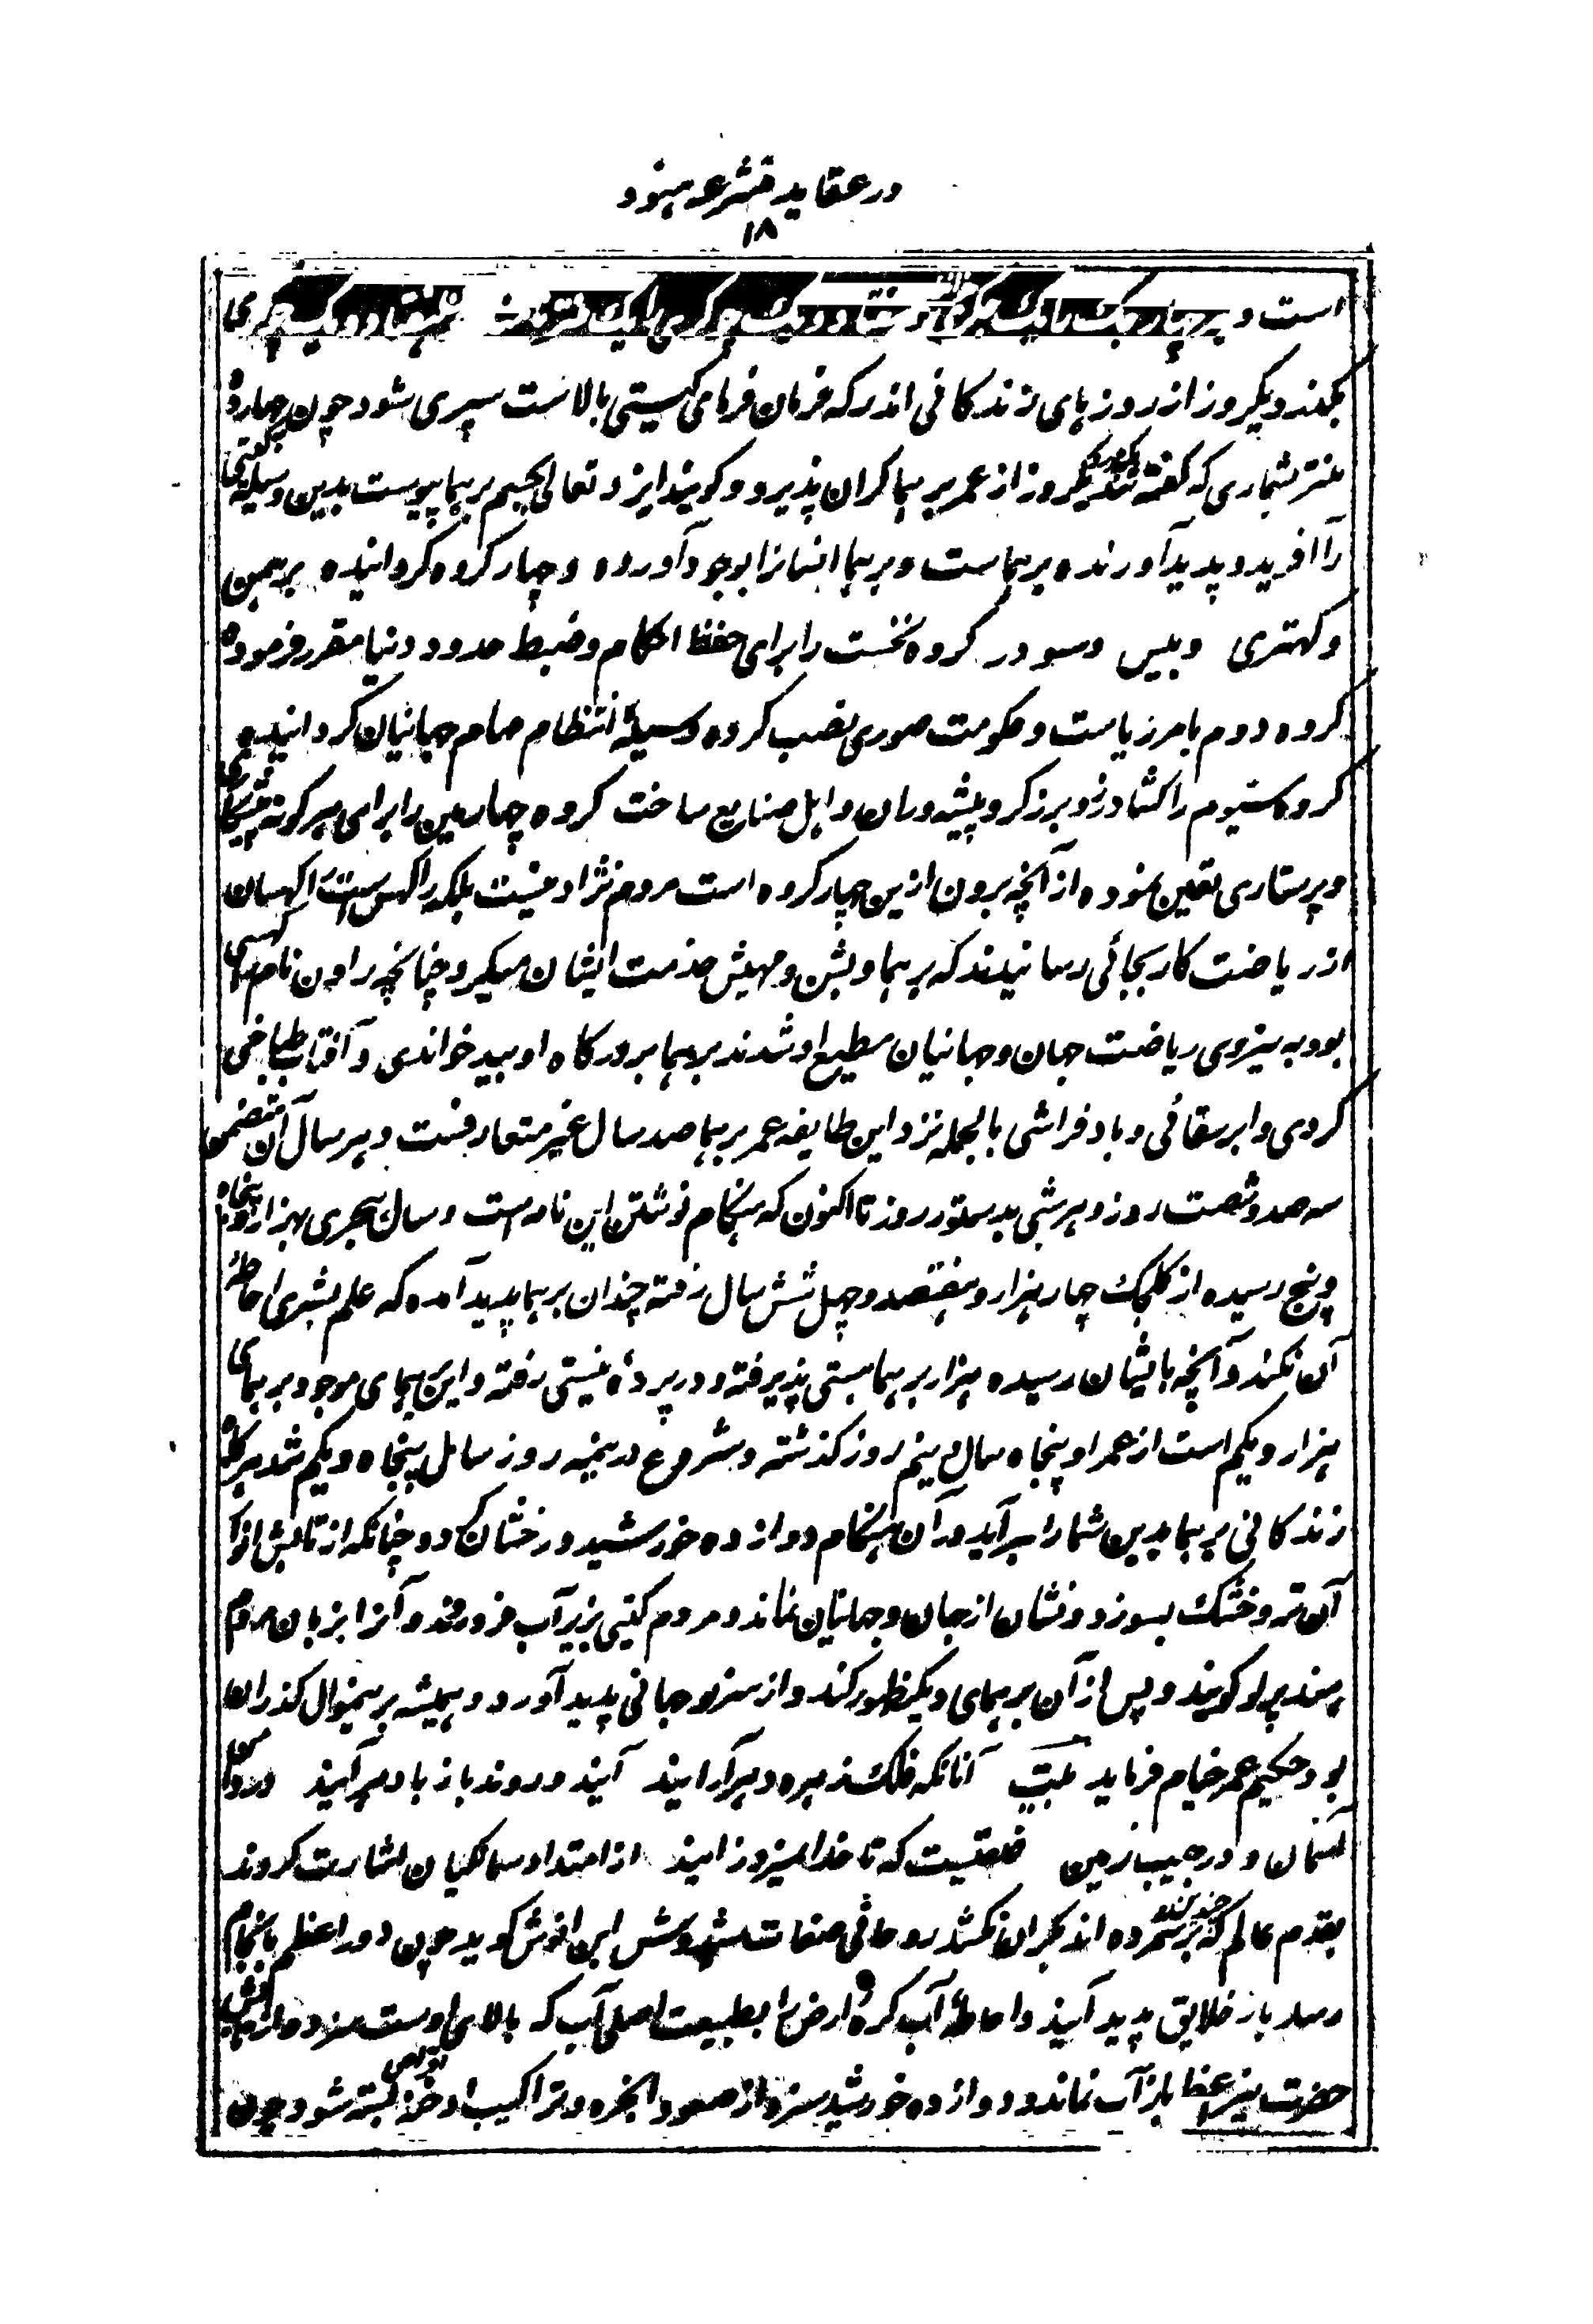 در عقاید متشرعه هنود
۱۸
است و
بکند و یکروز از روز های زندکانی اندر که فرمان فرمای کیستی بالاست سپری شود چون چهارده
منتر بشماری که گفته شد یکروز از عمر برهما کران پذیرد و کویند ایزد تعالی بجسم برهما پیوست بدین وسیله کیتی
را آفرید و پدید آورنده برهماست و برهما انسانرا بوجود آورده و چهار کروه کردانیده برهمن
و کهتری و بیس و سودر کروه نخست را برای حفظ احکام و ضبط حدود دنیا مقرر فرموده
کروه دوم بامر ریاست و حکومت صوری نصب کرده وسیلهٔ انتظام مهام جهانیان کردانیده
کروه سیوم را کشاورز و برزکر و پیشه وران و اهل صنایع ساخت کروه چهارمین را برای هر کونه
و پرستاری تعین نموده از آنچه برون ازین چهار کروه است مردم نژاد نیست بلکه راکهس است راکهسان
از ریاضت کار بجائی رسانیدند که برهما و بشن و مهیش خدمت ایشان میکرد چنانچه راون نام راکهسی
بود به نیروی ریاضت جهان و جهانیان مطیع او شدند برهما بر درکاه او بید خواندی و آفتاب طباخی
کردی و ابر سقائی و باد فراشی بالجمله نزد این طایفه عمر برهما صد سال غیر متعارفست و هر سال آن متضمن
سه صد و شصت روز و هر شبی بدستور روز تا اکنون که هنکام نوشتن این نامه است و سال هجری بهزار و پنجاه
و پنج رسیده از کلجک چهار هزار و هفتصد و چهل شش سال رفته چندان برهما پدید آمده که علم بشری احاطهٔ
آن نکند و آنچه بایشان رسیده هزار برهما هستی پذیرفته و در پردهٔ نیستی رفته و این برهمای موجود برهمای
هزار و یکم است از عمر او پنجاه سال و نیم روز کذشته و شروع در نیمه روز سال پنجاه و یکم شد هرکاه
زندکانی برهما بدین شمار بسر آید در آن هنکام دوازده خورشید درخشان کردد چنانکه از تابش انوار
آن تر و خشک بسوزد و نشان از جهان و جهانیان نماند و مردم کیتی بزیر آب فرو روند و آنرا بزبان مردم
هند پرلو کویند و پس از آن برهمای دیکر ظهور کند و از سر نو جهانی پدید آورد و همیشه بر همینوال کذران
بود حکیم عمر خیام فرماید بیت آنانکه فلک ز مهره و هر آرایند آیند و روند باز با دهر آیند در دامن
آسمان و در جیب زمین خلقیست که تا خدا نمیرد زایند از امتداد سالیان اشارت کردند
بقدم عالم که هر چند برشمرده اند بکران نکشد روحانی صفات شیدوش ابن انوش کوید چون دور اعظم بانجام
رسد باز خلایق پدید آیند و احاطهٔ آب کرهٔ ارض را بطبیعت اصلی آب که بالای اوست سزد و از تابش
حضرت نیر اعظم باز آب نماند و دوازده خورشید سزد از صعود ابخره و تراکیب ادخنه بسته شود چون